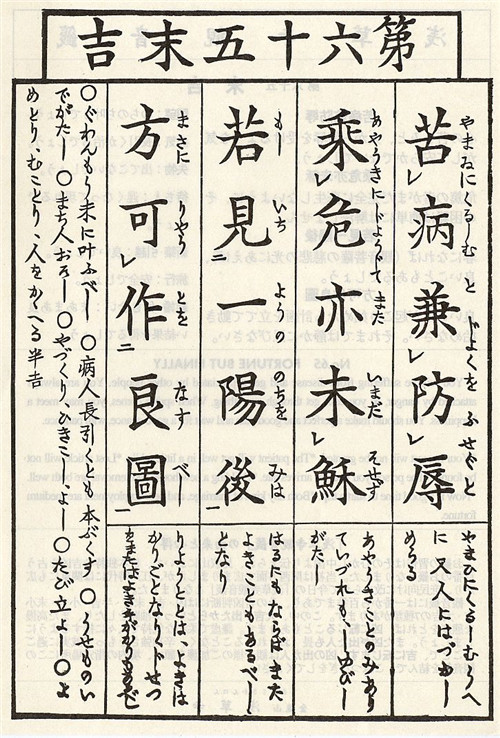 第六十五末吉
苦病兼防辱
やまゐにくるしむと ぢじよくをふせぐと
やまひにくるしむうへ
に 又人にはづかし
めらるる
乘危亦未穌
あやうきによつてまた いまだ そせず
あやうきことのみあり
ていづれも
がたし
若見一陽後
もし いち ようの のちを みば
はるにもならばまた
よきこともあるべし
となり
方可作良圖
まさに りやうとを なすべし
りようととは、よきは
かりごとなり
〇ぐわんもう末に叶ふべし 〇病人長引くとも本ぶくす 〇うせものい
でがたし 〇まち人おそし 〇やづくり、ひきこしよし 〇たび立よし 〇よ
めとり、むことり、人をかゝへる半吉